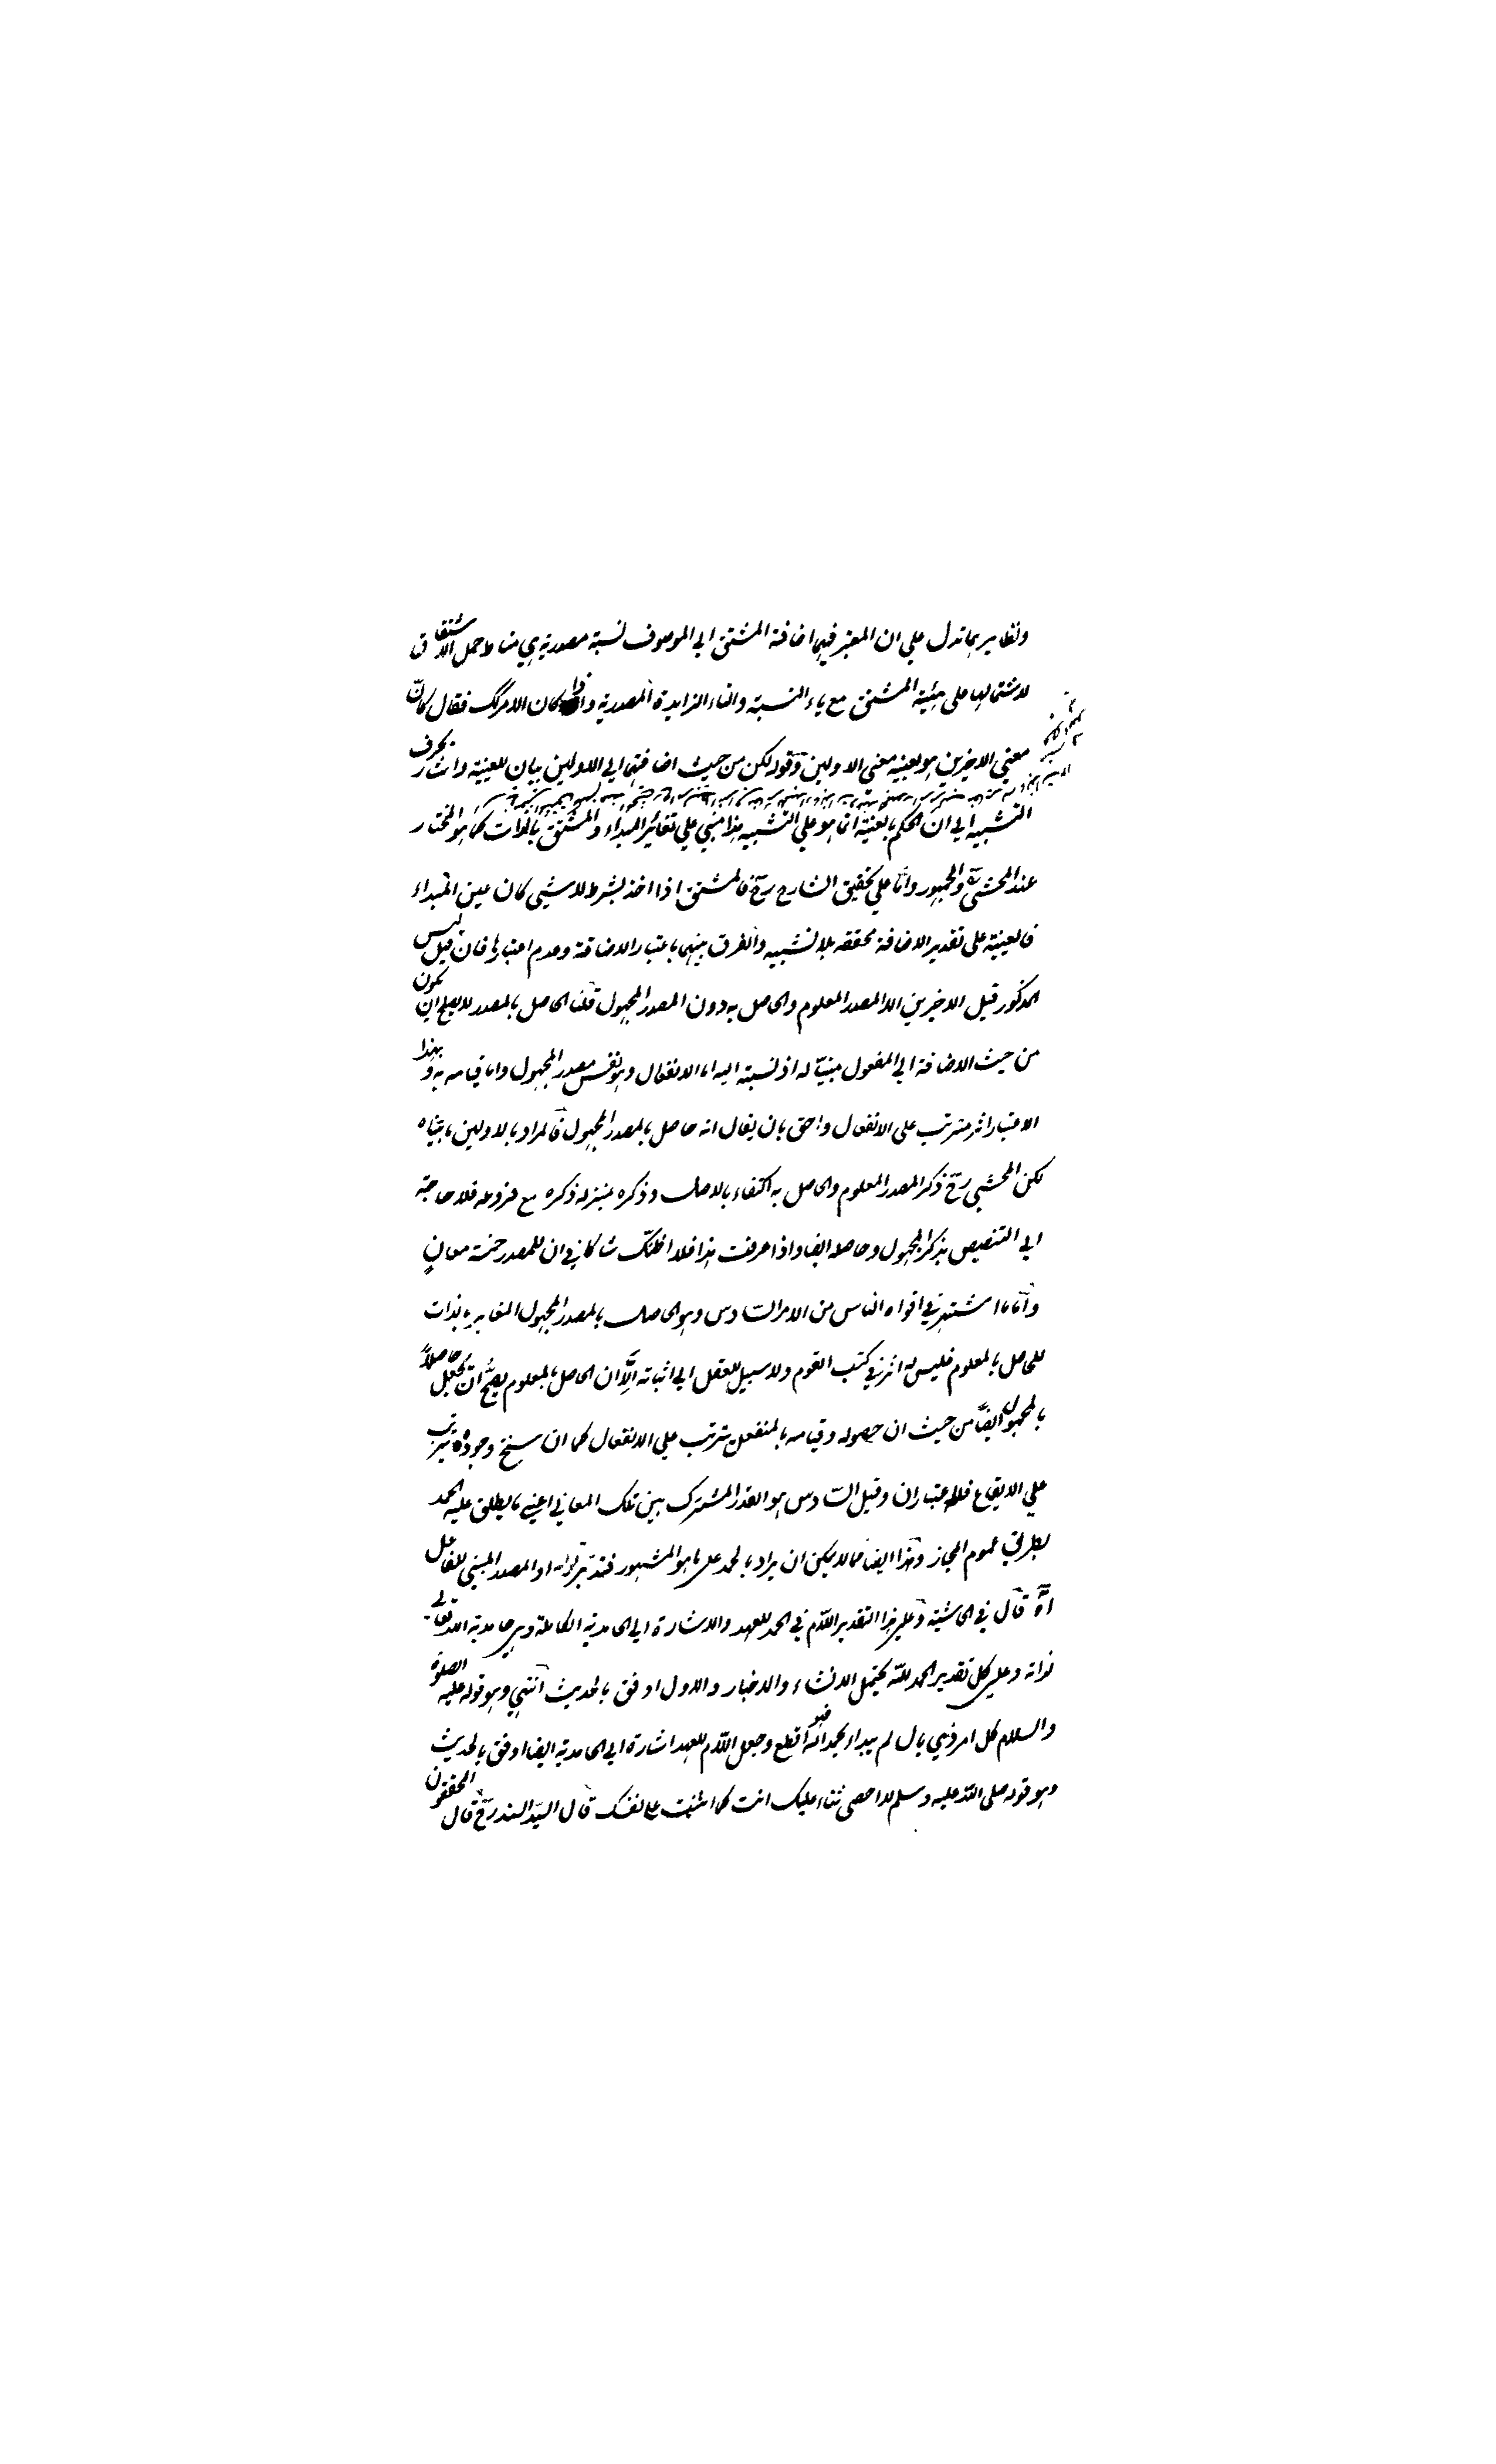 ونظايرهما تدل علي ان المعتبر فيها اضافة المشتق الي الموصوف نسبة مصدرية هي مناط حمل الاشتقاق
لاشتمالها على هيئة المشتق مع ياء النسبة والتاء الزايدة المصدرية واذا كان الامر كك فقال كانّ
معني الاخيرين هو بعينه معني الاولين وقوله لكن من حيث اضافتها الي الاولين بيان للعينية واشار بحرف
التشبيه الي ان الحكم بالعينية انما هو علي التشبيه هذا مبني علي تغائر المبداء والمشتق بالذات كما هو المختار
عند المحشي والجمهور واما علي تحقيق الشارح رح فالمشتق اذا اخذ بشرط لا شيي كان عين المبداء
فالعينية على تقدير الاضافة محققه بلا تشبيه والفرق بينهما باعتبار الاضافة وعدم اعتبارها فان قيل ليس
المذكور قبل الاخيرين الا المصدر المعلوم والحاصل به دون المصدر المجهول قلنا الحاصل بالمصدر لا يصلح ان يكون
من حيث الاضافة الي المفعول مبنيا له اذ نسبته اليه اما الانفعال وهو نفس مصدر المجهول واما قيامه به وبهذا
الاعتبار اثر مترتب علي الانفعال واحق بان يقال انه حاصل بالمصدر المجهول فالمراد بالاولين ما بيناه
لكن المحشي رح ذكر المصدر المعلوم والحاصل به اكتفاء بالاصل وذكره بمنزلة ذكره مع فروعه فلا حاجة
الي التنصيص بذكر المجهول وحاصله ايضا واذا عرفت هذا فلا اظنك شاكا في ان للمصدر خمسة معانٍ
واما ما اشتهر في افواه الناس من الامر السادس وهو الحاصل بالمصدر المجهول المغاير بالذات
للحاصل بالمعلوم فليس له اثر في كتب القوم ولا سبيل للعقل الي اثباته الّا ان الحاصل بالمعلوم يصحّ ان يجعل حاصلاً
بالمجهول ايضا من حيث ان حصوله وقيامه بالمنفعل مترتب علي الانفعال كما ان سنخ وجوده يترتب
علي الايقاع فله اعتباران وقيل السادس هو القدر المشترك بين تلك المعاني اعني ما يطلق عليه الحمد
بطريق عموم المجاز وهذا ايضا مما لا يمكن ان يراد بالحمد على ما هو المشهور فتدبّر قوله او المصدر المبني للفاعل
اه قال في الحاشية وعلي هذا التقدير اللام في الحمد للعهد والاشارة الي الحامدية الكاملة وهي حامدية الله تعالي
لذاته وعلي كل تقدير الحمد لله يحتمل الانشاء والاخبار والاول اوفق بالحديث انتهي وهو قوله عليه الصلوة
والسلام كل امر ذي بال لم يبداء بحمد الله فهو اقطع وجعل اللام للعهد اشارة الي الحامدية ايضا اوفق بالحديث
وهو قوله صلى الله عليه وسلم لا احصي ثناء عليك انت كما اثنيت علي نفسك قال السيد السند رح قال المحققون